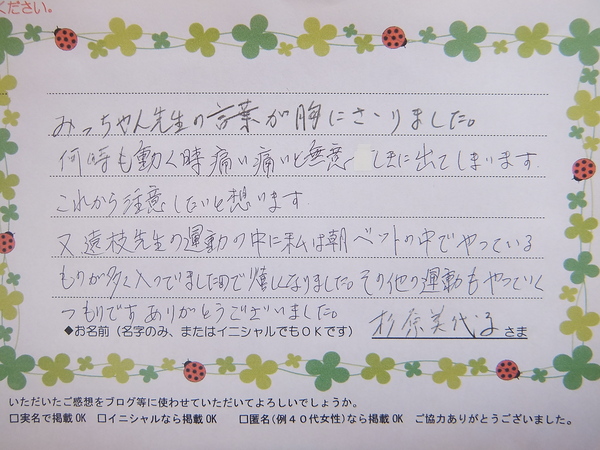 ください。
みっちゃん先生の言葉が胸にさゝりました。
何時も動く時痛い痛いと無意しきに出てしまいます
これから注意したいと想います
又遠枝先生の運動の中に私は朝ベットの中でやっている
ものが多く入ってましたので嬉しくなりました。その他の運動もやっていく
つもりですありがとうございました。
◆お名前（名字のみ、またはイニシャルでもＯＫです） 杉奈美代子さま
いただいたご感想をブログ等に使わせていただいてよろしいでしょうか。
□実名で掲載OK □イニシャルなら掲載OK □匿名(例４０代女性)なら掲載OK ご協力ありがとうございました。